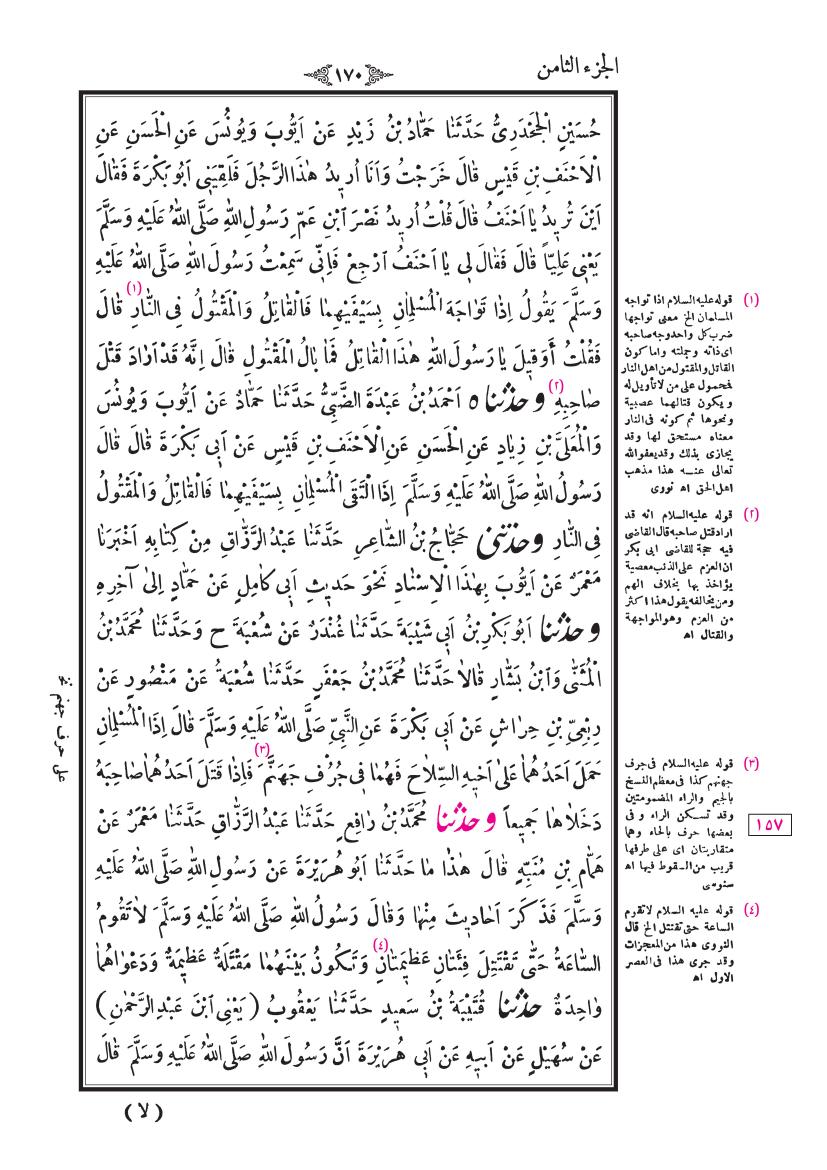 الجزء الثامن
١٧٠
حُسَيْنٍ الْجَحْدَرِيُّ حَدَّثَنَا حَمَّادُ بْنُ زَيْدٍ عَنْ اَيُّوبَ وَيُونُسَ عَنِ الْحَسَنِ عَنِ
الْاَحْنَفِ بْنِ قَيْسٍ قَالَ خَرَجْتُ وَاَنَا اُرِيدُ هٰذَا الرَّجُلَ فَلَقِيَنِى اَبُو بَكْرَةَ فَقَالَ
اَيْنَ تُرِيدُ يَا اَحْنَفُ قَالَ قُلْتُ اُرِيدُ نَصْرَ ابْنِ عَمِّ رَسُولِ اللهِ صَلَّى اللهُ عَلَيْهِ وَسَلَّمَ
يَعْنِى عَلِيًّا قَالَ فَقَالَ لِى يَا اَحْنَفُ ارْجِعْ فَاِنِّى سَمِعْتُ رَسُولَ اللهِ صَلَّى اللهُ عَلَيْهِ
وَسَلَّمَ يَقُولُ اِذَا تَوَاجَهَ الْمُسْلِمَانِ بِسَيْفَيْهِمَا فَالْقَاتِلُ وَالْمَقْتُولُ فِى النَّارِ (١) قَالَ
فَقُلْتُ أَوْ قِيلَ يَا رَسُولَ اللهِ هٰذَا الْقَاتِلُ فَمَا بَالُ الْمَقْتُولِ قَالَ اِنَّهُ قَدْ اَرَادَ قَتْلَ
صَاحِبِهِ (٢) وحدثنا ٥ اَحْمَدُ بْنُ عَبْدَةَ الضَّبِّىُّ حَدَّثَنَا حَمَّادٌ عَنْ اَيُّوبَ وَيُونُسَ
وَالْمُعَلَّى بْنِ زِيَادٍ عَنِ الْحَسَنِ عَنِ الْاَحْنَفِ بْنِ قَيْسٍ عَنْ اَبِى بَكْرَةَ قَالَ قَالَ
رَسُولُ اللهِ صَلَّى اللهُ عَلَيْهِ وَسَلَّمَ اِذَا الْتَقَى الْمُسْلِمَانِ بِسَيْفَيْهِمَا فَالْقَاتِلُ وَالْمَقْتُولُ
فِى النَّارِ وحدثنى حَجَّاجُ بْنُ الشَّاعِرِ حَدَّثَنَا عَبْدُ الرَّزَّاقِ مِنْ كِتَابِهِ اَخْبَرَنَا
مَعْمَرٌ عَنْ اَيُّوبَ بِهٰذَا الْاِسْنَادِ نَحْوَ حَدِيثِ اَبِى كَامِلٍ عَنْ حَمَّادٍ اِلىٰ آخِرِهِ
وحدثنا اَبُو بَكْرِ بْنُ اَبِى شَيْبَةَ حَدَّثَنَا غُنْدَرٌ عَنْ شُعْبَةَ ح وَحَدَّثَنَا مُحَمَّدُ بْنُ
الْمُثَنَّى وَابْنُ بَشَّارٍ قَالَا حَدَّثَنَا مُحَمَّدُ بْنُ جَعْفَرٍ حَدَّثَنَا شُعْبَةُ عَنْ مَنْصُورٍ عَنْ
رِبْعِىِّ بْنِ حِرَاشٍ عَنْ اَبِى بَكْرَةَ عَنِ النَّبِىِّ صَلَّى اللهُ عَلَيْهِ وَسَلَّمَ قَالَ اِذَا الْمُسْلِمَانِ
حَمَلَ اَحَدُهُمَا عَلىٰ اَخِيهِ السِّلَاحَ فَهُمَا فِى جُرْفِ جَهَنَّمَ (٣) فَاِذَا قَتَلَ اَحَدُهُمَا صَاحِبَهُ
دَخَلَاهَا جَمِيعاً وحدثنا مُحَمَّدُ بْنُ رَافِعٍ حَدَّثَنَا عَبْدُ الرَّزَّاقِ حَدَّثَنَا مَعْمَرٌ عَنْ
هَمَّامِ بْنِ مُنَبِّهٍ قَالَ هٰذَا مَا حَدَّثَنَا اَبُو هُرَيْرَةَ عَنْ رَسُولِ اللهِ صَلَّى اللهُ عَلَيْهِ
وَسَلَّمَ فَذَكَرَ اَحَادِيثَ مِنْهَا وَقَالَ رَسُولُ اللهِ صَلَّى اللهُ عَلَيْهِ وَسَلَّمَ لَا تَقُومُ
السَّاعَةُ حَتّٰى تَقْتَتِلَ فِئَتَانِ عَظِيمَتَانِ (٤) وَتَكُونُ بَيْنَهُمَا مَقْتَلَةٌ عَظِيمَةٌ وَدَعْوَاهُمَا
وَاحِدَةٌ حدثنا قُتَيْبَةُ بْنُ سَعِيدٍ حَدَّثَنَا يَعْقُوبُ (يَعْنِى ابْنَ عَبْدِ الرَّحْمٰنِ)
عَنْ سُهَيْلٍ عَنْ اَبِيهِ عَنْ اَبِى هُرَيْرَةَ اَنَّ رَسُولَ اللهِ صَلَّى اللهُ عَلَيْهِ وَسَلَّمَ قَالَ
(لا)
(١) قوله عليه السلام اذا تواجه
المسلمان الخ معنى تواجها
ضرب كل واحد وجه صاحبه
اى ذاته وجملته واما كون
القاتل والمقتول من اهل النار
فمحمول على من لا تأويل له
ويكون قتالهما عصبية
ونحوها ثم كونه فى النار
معناه مستحق لها وقد
يجازى بذلك وقد يعفو الله
تعالى عنه هذا مذهب
اهل الحق اه نووى
(٢) قوله عليه السلام انه قد
اراد قتل صاحبه قال القاضى
فيه حجة للقاضى ابى بكر
ان العزم على الذنب معصية
يؤاخذ بها بخلاف الهم
ومن يخالفه يقول هذا اكثر
من العزم وهو المواجهة
والقتال اه
(٣) قوله عليه السلام فى جرف
جهنم كذا فى معظم النسخ
بالجيم والراء المضمومتين
وقد تسكن الراء و فى
بعضها حرف بالحاء وهما
متقاربتان اى على طرفها
قريب من السقوط فيها اه
سنوسى
١٥٧
(٤) قوله عليه السلام لا تقوم
الساعة حتى تقتتل الخ قال
النووى هذا من المعجزات
وقد جرى هذا فى العصر
الاول اه
على حرف جهنم نخ